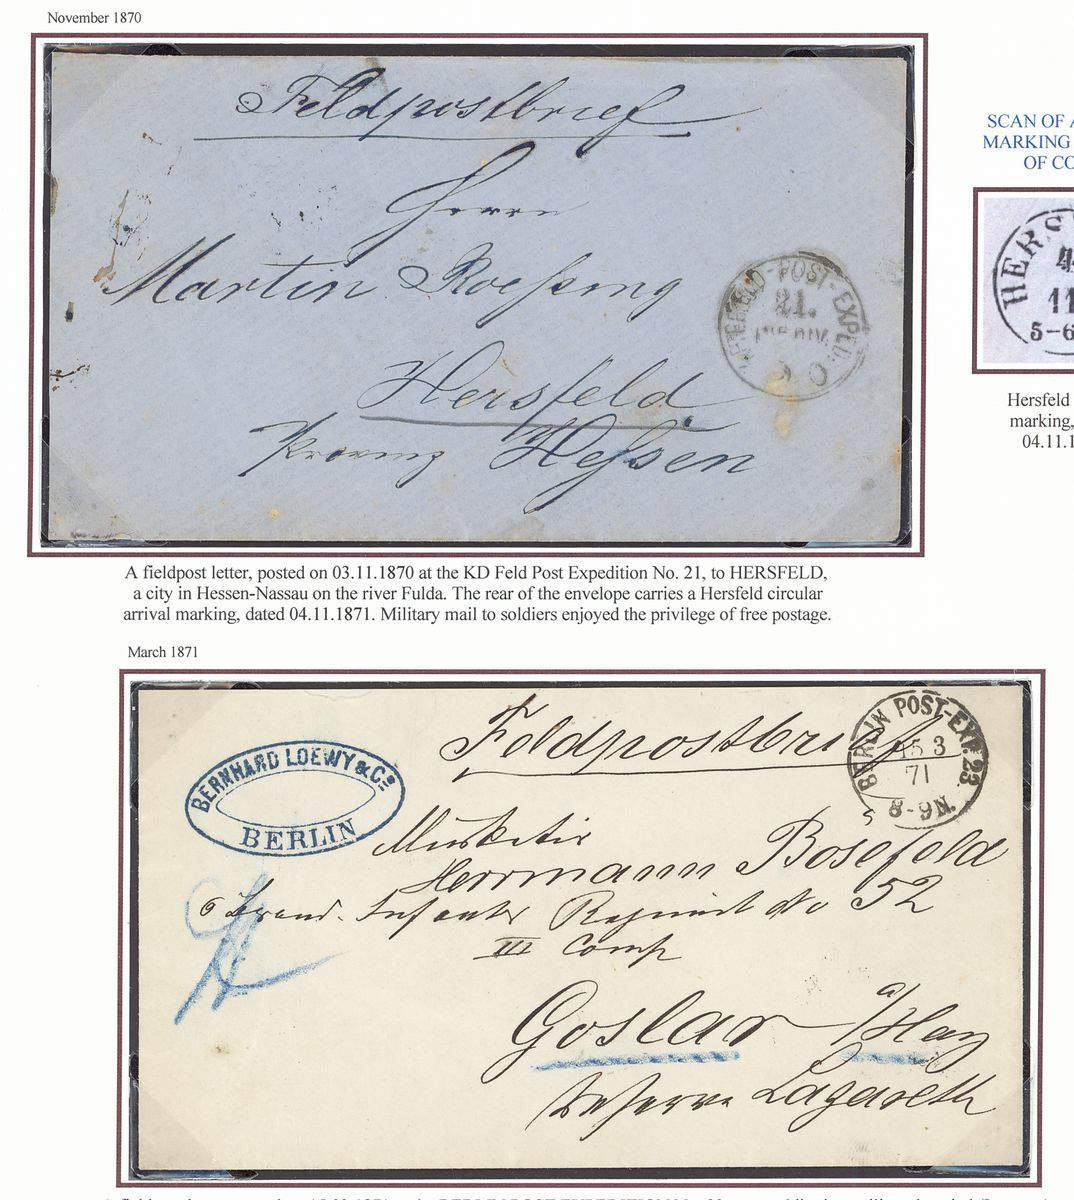 November 1870
Feldpostbrief
Herrn
Martin Roessing
K.PR.FELD-POST-EXPED.
21.
INF.DIV.
Hersfeld
Provinz Hessen
SCAN OF A
MARKING
OF CO
HERS
11
5-6
Hersfeld
marking,
04.11.1
A fieldpost letter, posted on 03.11.1870 at the KD Feld Post Expedition No. 21, to HERSFELD,
a city in Hessen-Nassau on the river Fulda. The rear of the envelope carries a Hersfeld circular
arrival marking, dated 04.11.1871. Military mail to soldiers enjoyed the privilege of free postage.
March 1871
BERNHARD LOEWY & Co
BERLIN
Feldpostbrief
BERLIN POST-EXP. 23.
15 3
71
8-9N.
Musketir
Herrmann Bosefeld
6 Brand. Infantr Regimnt No 52
III Comp
Goslar a/Harz
Reserve Lazareth